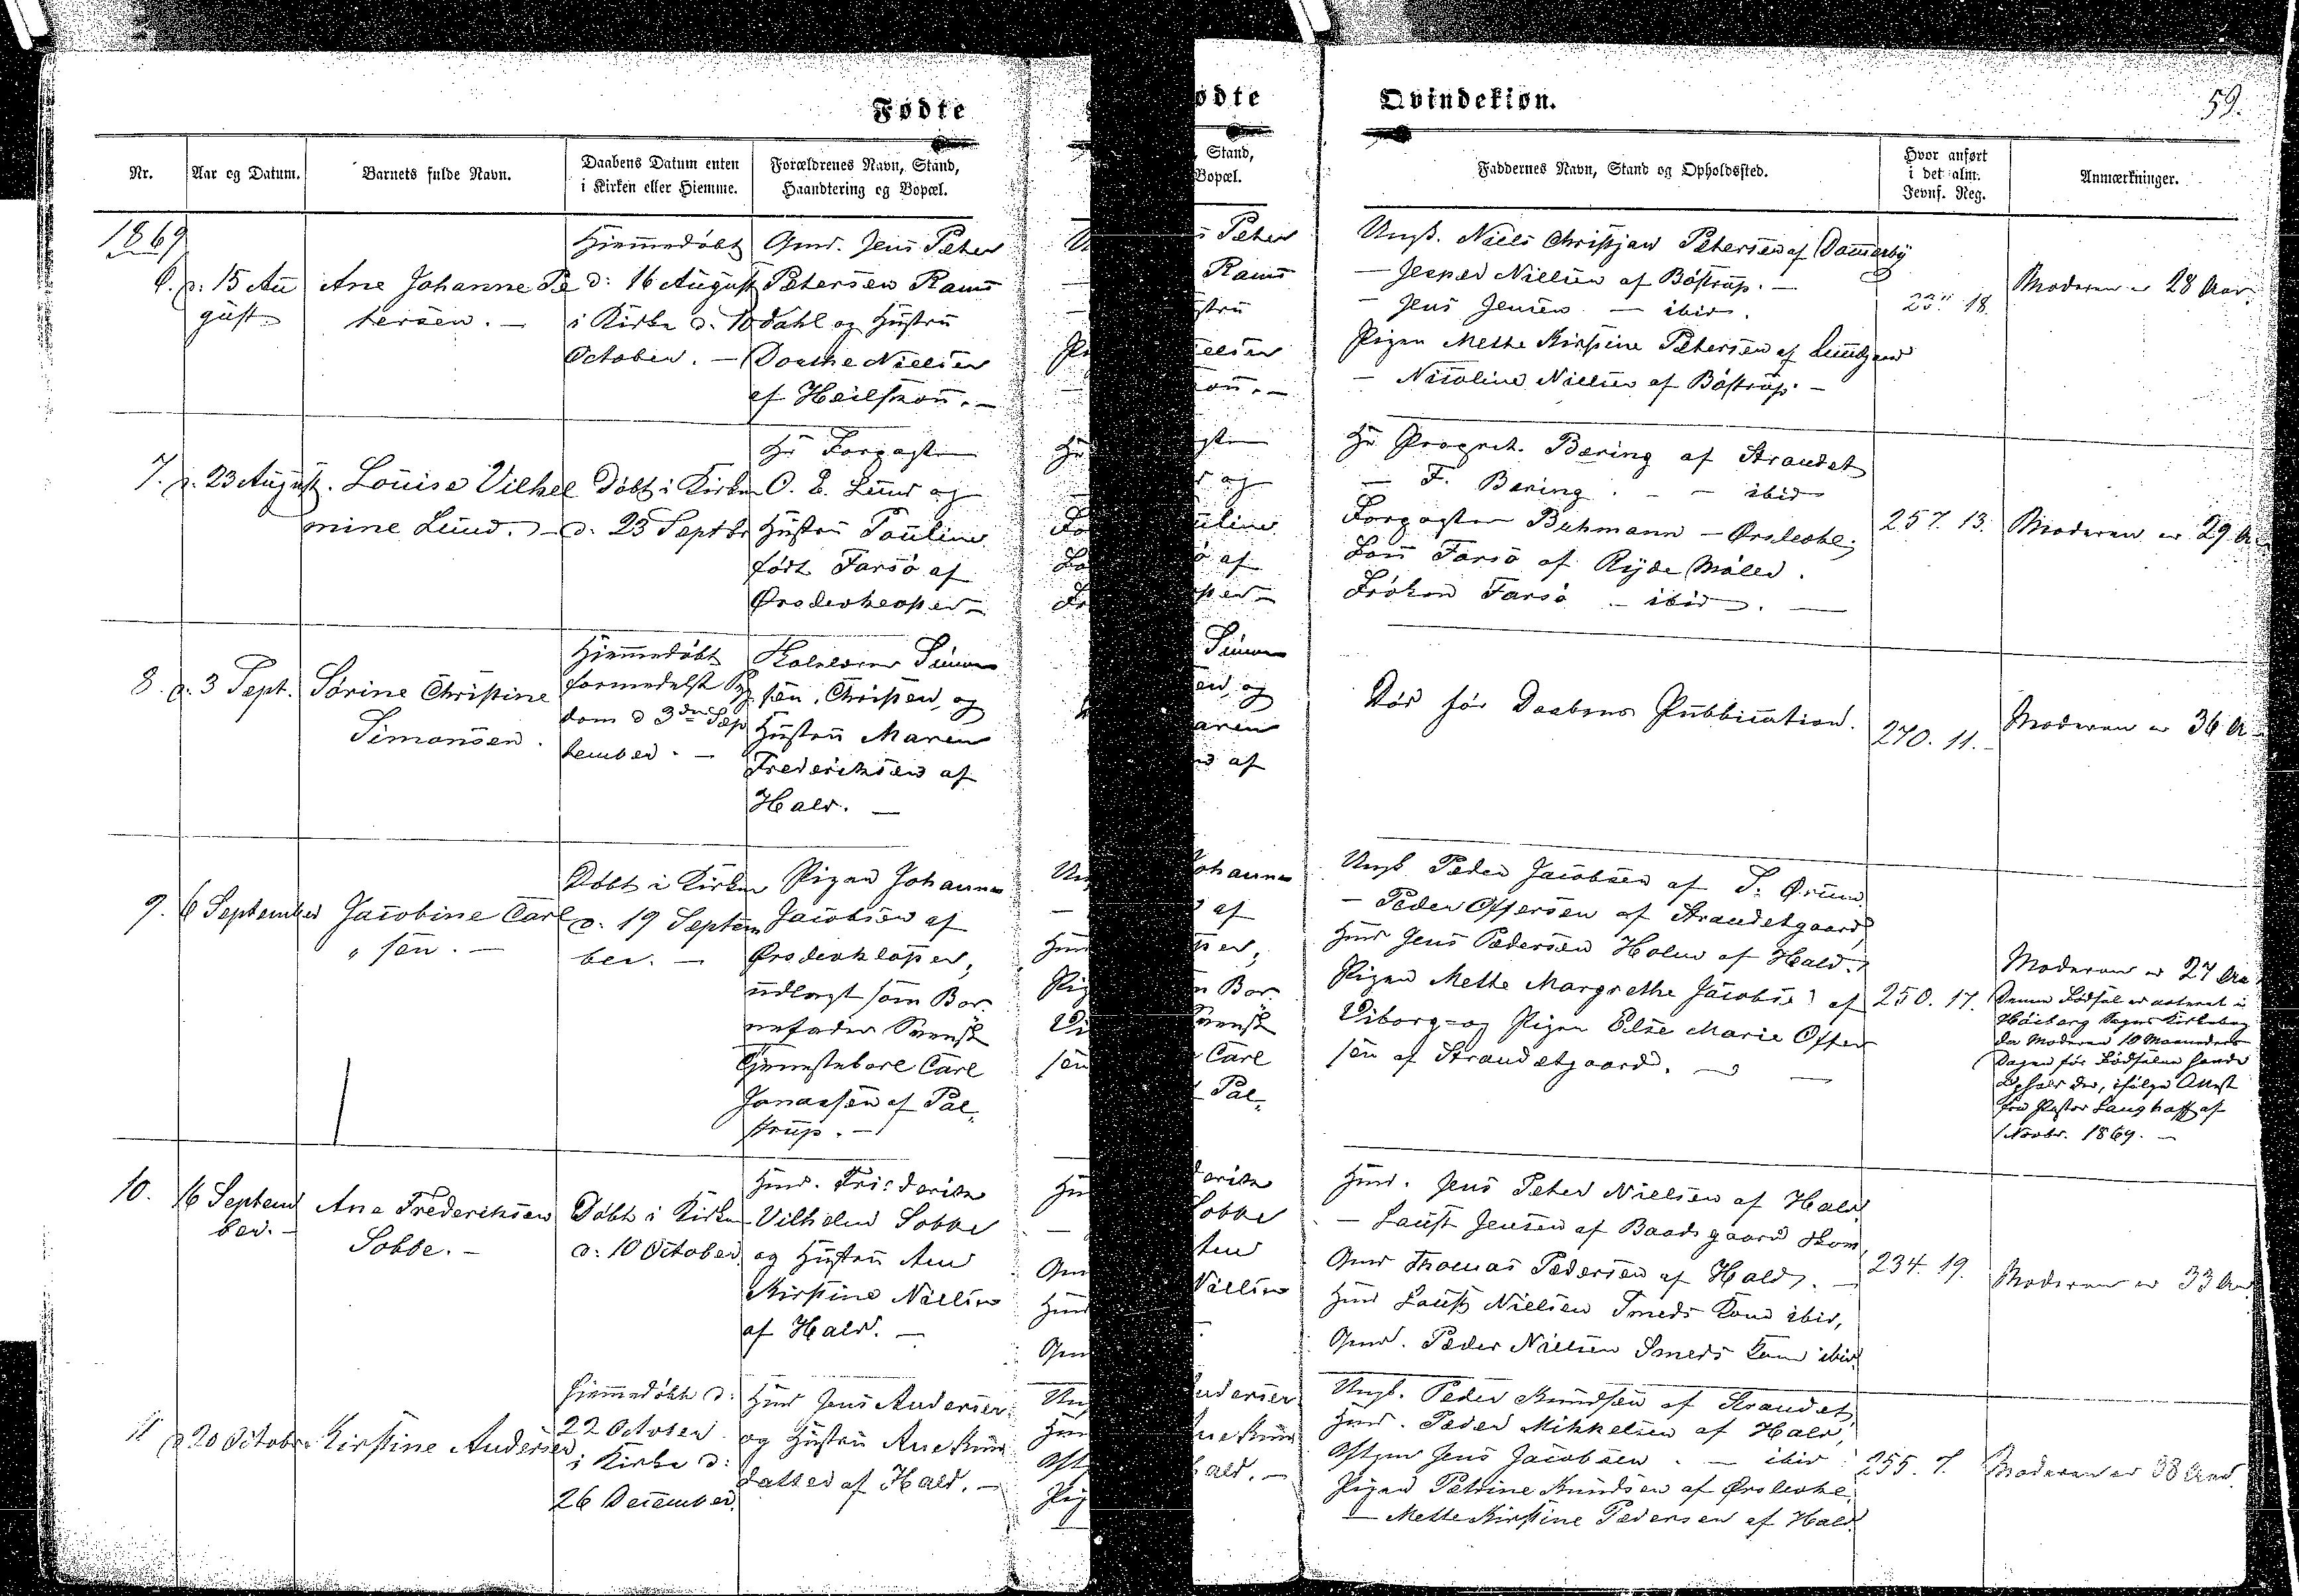 Fødte
Nr.
Aar og Datum.
Barnets fulde Navn.
Daabens Datum enten
i Kirken eller Hiemme.
Forældrenes Navn, Stand,
Haandtering og Bopæl.
1869
6.
d: 15 Au
gust.
Ane Johanne Pe
tersen. —
Hjemmedøbt
d: 16 August
i Kirke d. 10
October. —
Gmd. Jens Peter
Petersen Rams
dahl og Hustru
Dorthe Nielsen
af Heilskou. —
7.
d. 23 August.
Louise Vilhel
mine Lund. —
Døbt i Kirken
d. 23 Septbr
Hr Forpagter
O. E. Lund og
Hustru Pauline
født Farsø af
Ørslevkloster —
8.
d. 3 Sept.
Sørine Christine
Simonsen.
Hjemmedøbt
formedelst Syg
dom d 3die Sep
tember. —
Skolelærer Simon
sen, Christen, og
Hustru Maren
Frederiksen af
Hald. —
9.
6 September
Jacobine Carl
" sen. —
Døbt i Kirken
d. 19 Septem
ber. —
Pigen Johanne
Jacobsen af
Ørslevkloster,
udlagt som Bar
nefader Svensk
Tjenestekarl Carl
Jonassen af Pal-
strup. —
10.
16 Septem
ber. —
Ane Frederiksen
Sobbe. —
Døbt i Kirken
d: 10 October
Hmd. Friederik
Vilhelm Sobbe
og Hustru Ane
Kirstine Nielsen
af Hald. —
11
d 20 Octobr
Kirstine Andersen
Hjemmedøbt d:
22 October
i Kirke d:
26 December.
Hmd Jens Andersen
og Hustru Ane Knud
datter af Hald. —
Qvindekiøn.
59.
Faddernes Navn, Stand og Opholdssted.
Hvor anført
i det alm.
Jevnf. Reg.
Anmærkninger.
Ungk. Niels Christjan Petersen af Dommerby
— Jesper Nielsen af Bøstrup. —
— Jens Jensen — ibid.
Pigen Mette Kirstine Petersen af Lundgaard
— Nicoline Nielsen af Bøstrup. —
18.
Moderen er 28 Aar.
Hr Propriet. Bering af Strandet
— F. Bering. — — ibid
Forpagter Buhmann — Ørslevkl.
Farsø af Ryde Mølle.
Frøken Farsø — ibid. —
257. 13.
Moderen er 29 Aar
Død før Daabens Publication.
270. 11. —
Moderen er 36 Aar
Ungk Peder Jacobsen af S. Ørum
— Peder Offersen af Strandetgaard
Hmd Jens Pedersen Holm af Hald.
Pigen Mette Margrethe Jacobse: af
Viborg og Pigen Else Marie Offer
sen af Strandetgaard. —
250. 17.
Moderen er 27 Aar
Denne Fødsel er noteret i
Høibjerg Sogns Kirkebog
da Moderen 10 Maaneders
Dagen før Fødselen havde
Ophold der, ifølge Attest
fra Pastor Langhoff af
1 Novbr. 1869. —
Hmd. Jens Peter Nielsen af Hald
— Laust Jensen af Baadsgaard
Gmd Thomas Pedersen af Hald. —
Hmd Laust Nielsen Smeds Kone ibid,
Gmd. Peder Nielsen Smeds Kone ibid
234. 19.
Moderen er 33 Aar
Ungk. Peder Knudsen af Strandet,
Hmd. Peder Mikkelsen af Hald,
Jens Jacobsen. — ibid
Pigen Petrine Knudsen af Ørslevkl.
— Mette Kirstine Pedersen af Hald
255. 7.
Moderen er 38 Aar.